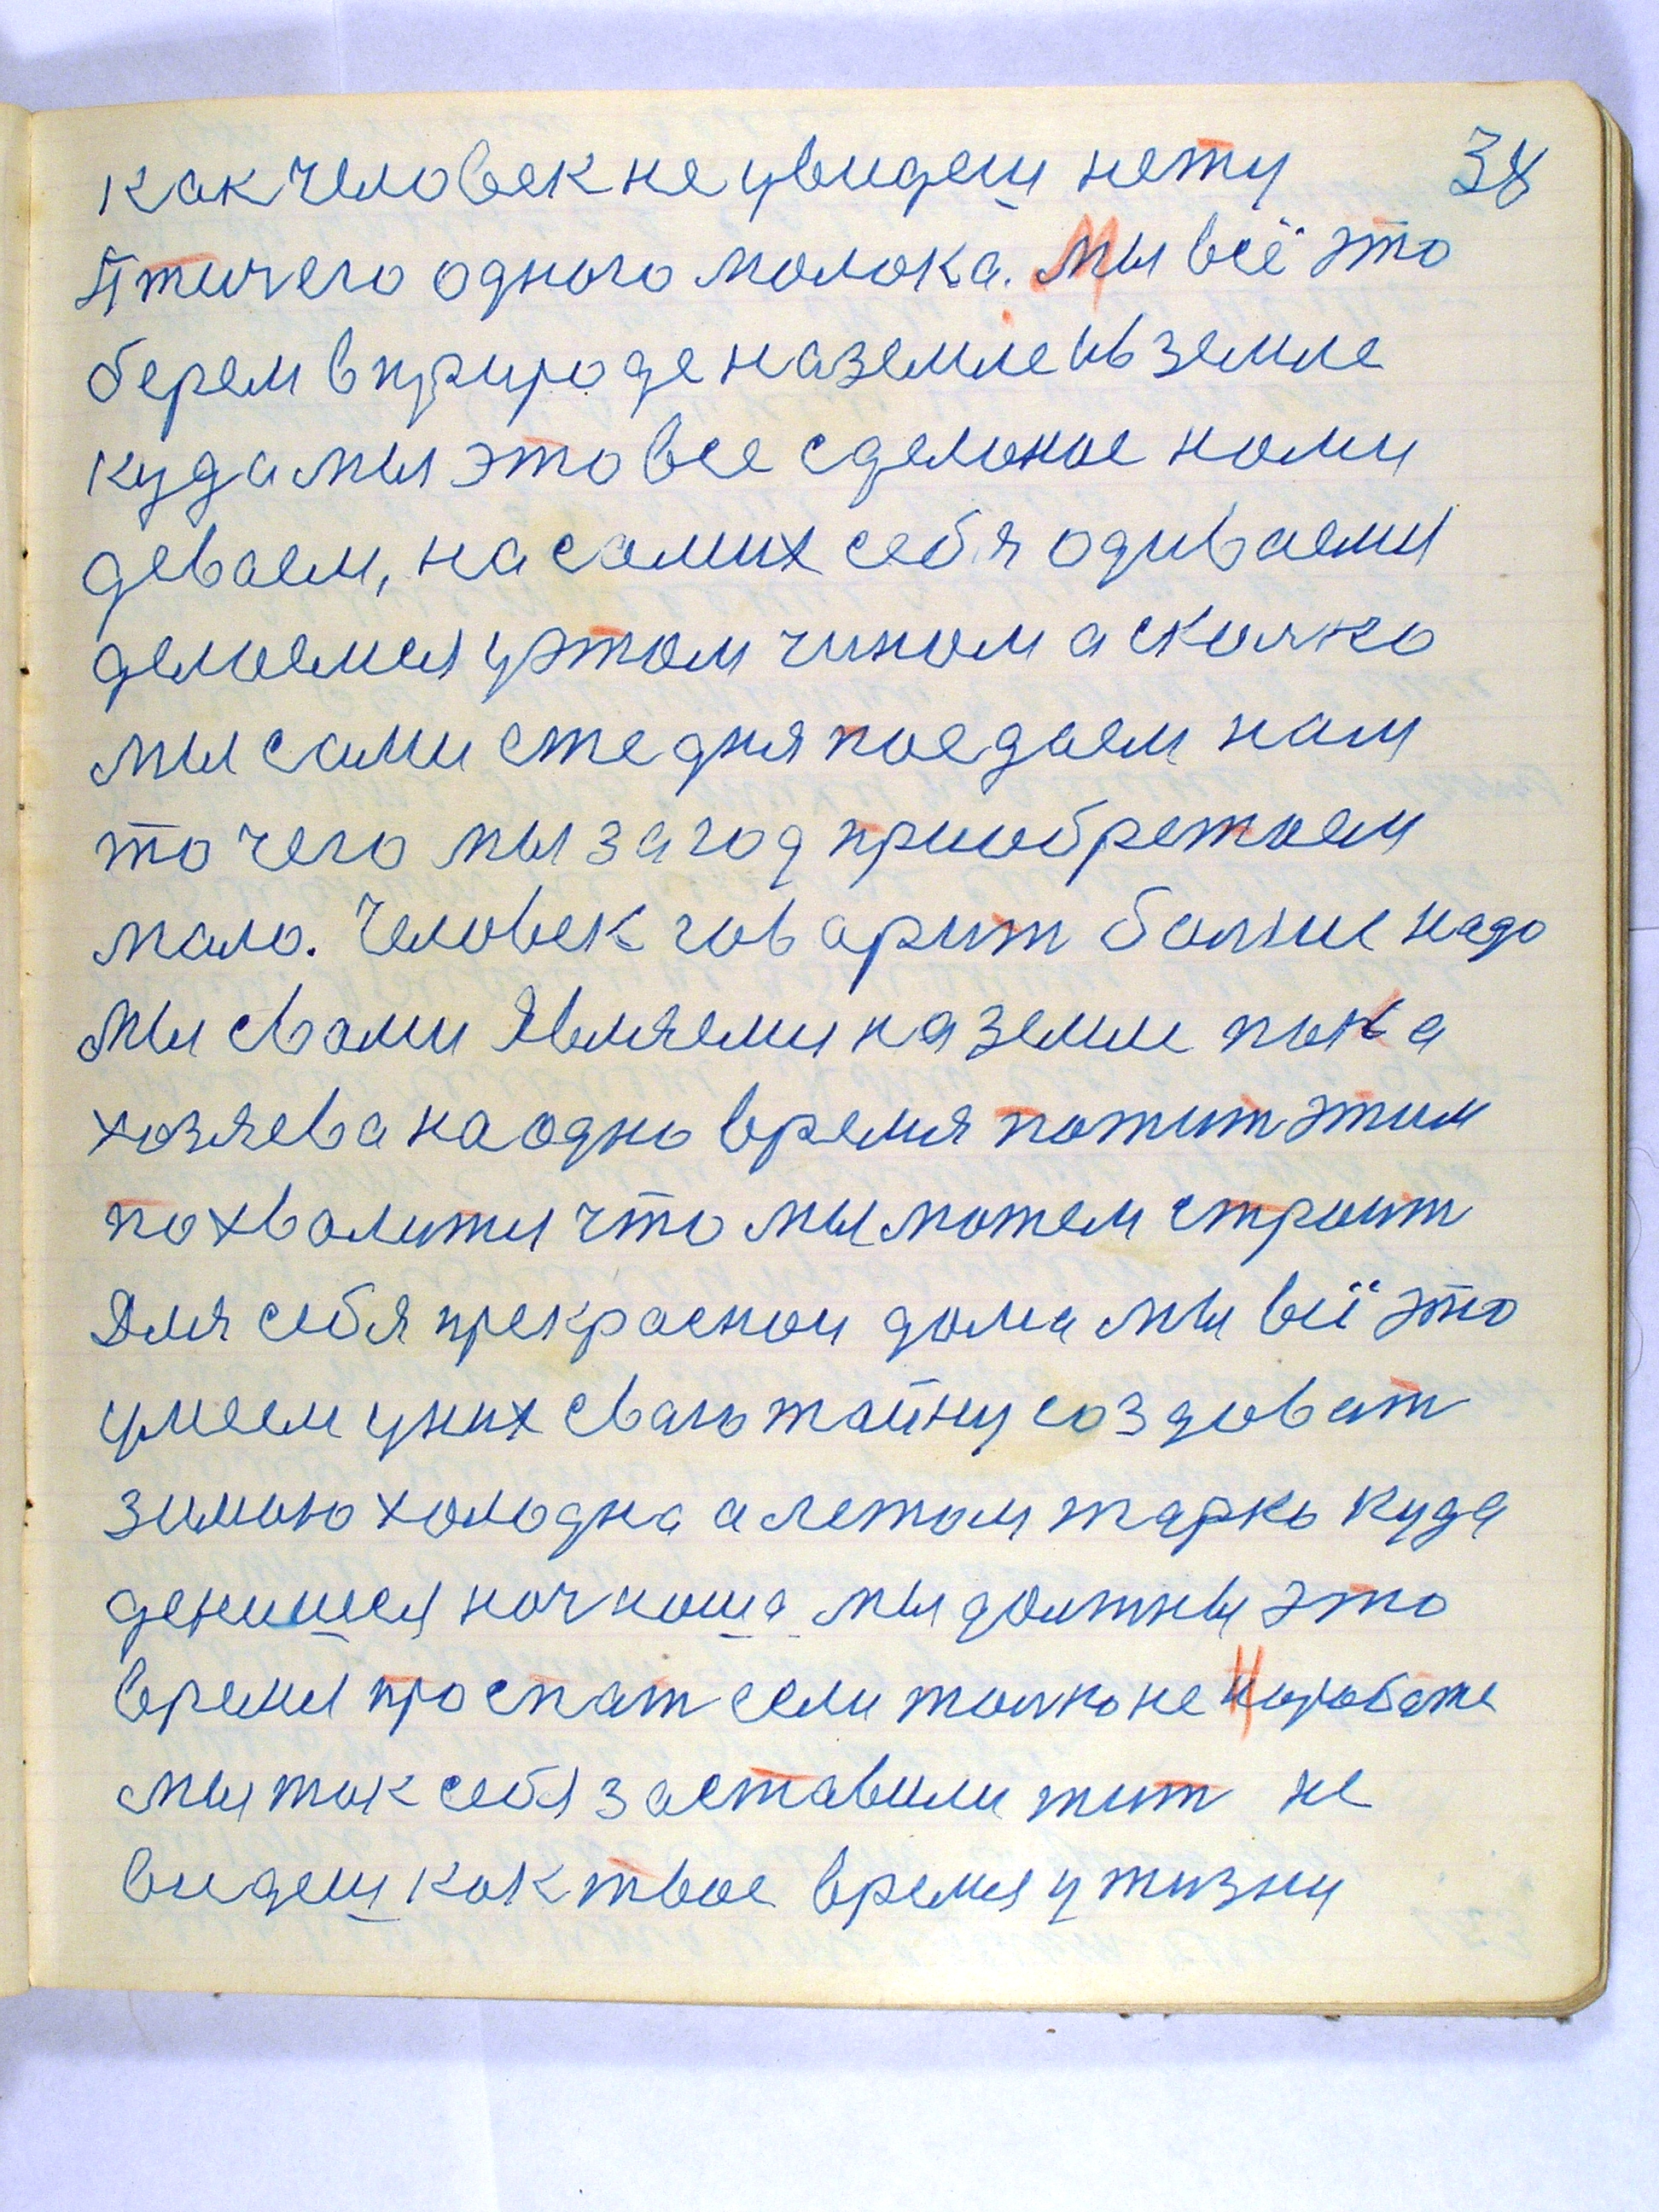 как человек не увидеш нету 38
Птичего одного молока. Мы всё это
берем в природе на земле ив земле
куда мы это все сделоное номи
деваем, на самих себя одиваемы
делаемся уэтом чином а сколко
мы сами сте дня поедаем нам
то чего мы за год приобретаем
мало. Человек гов арит болше надо
мы свами Являемы на земле пока
хозяева наодно время пожит этим
похвалитця что мы можем строит
Для себя прекраснои дома мы всё это
умеем уних сваю тайну создоват
зимою холодна а летом жарко куда
денишся ноч наша мы должны это
время проспат если толко не Наработе
мы так себя заставили жит не
видеш как твое время ужизни